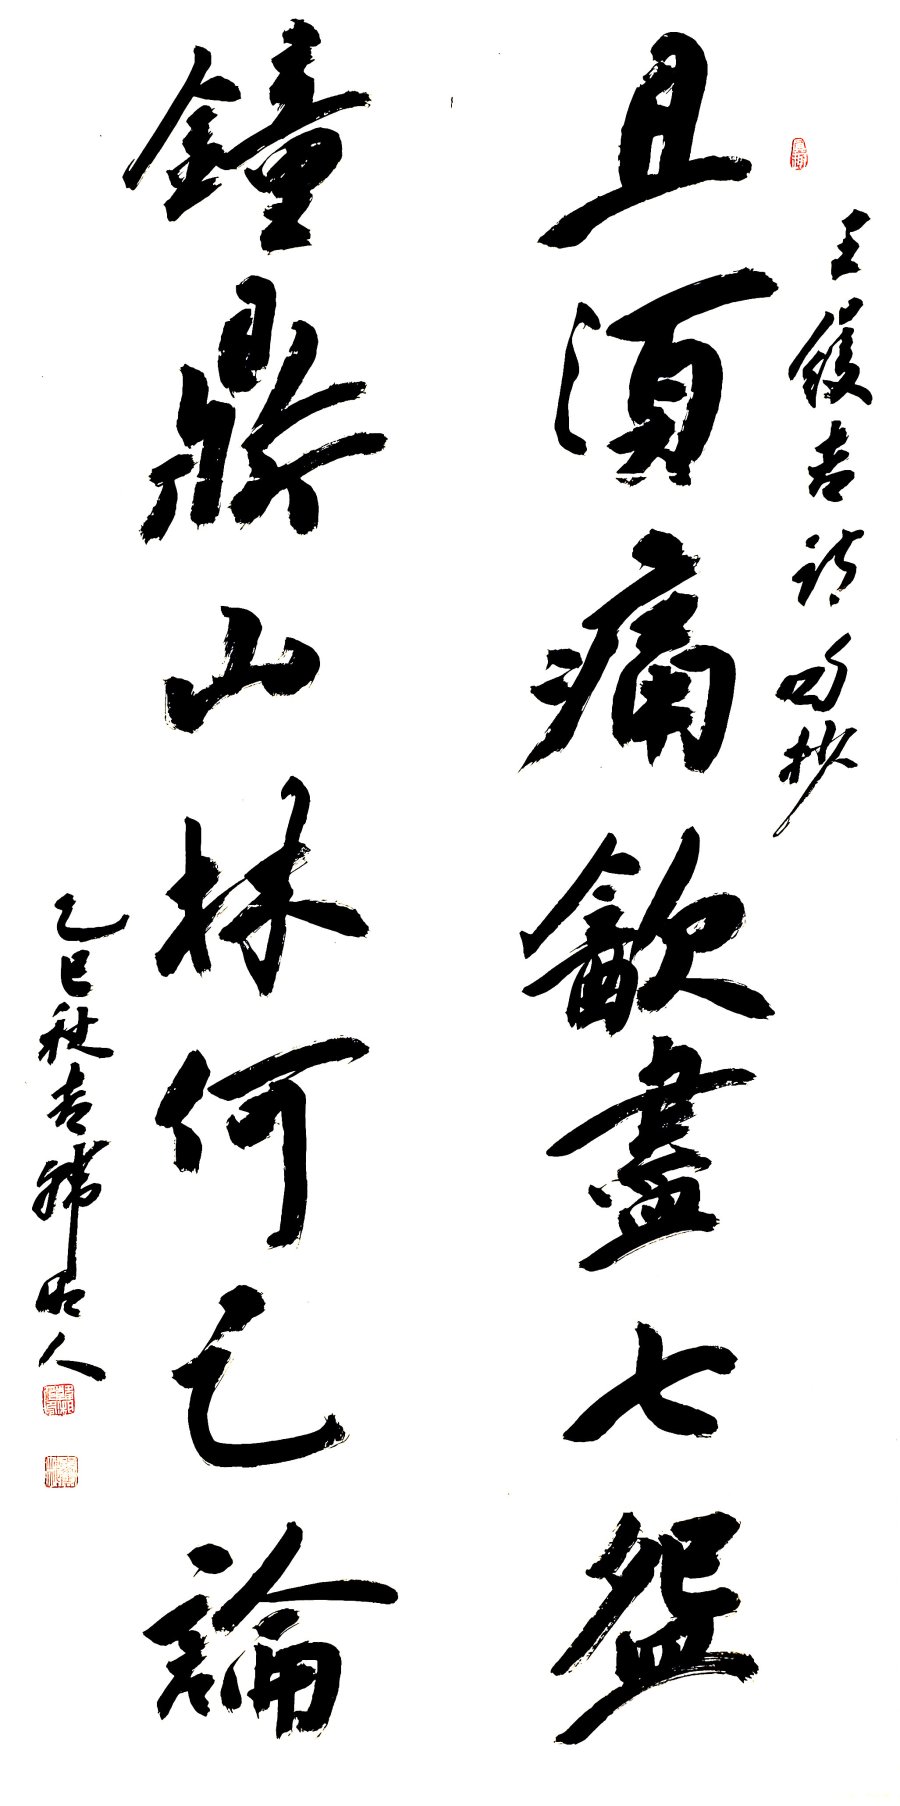 王鑊吉诗句抄
且須痛飲盡七盌
鐘鼎山林何足論
乙巳秋吉
人